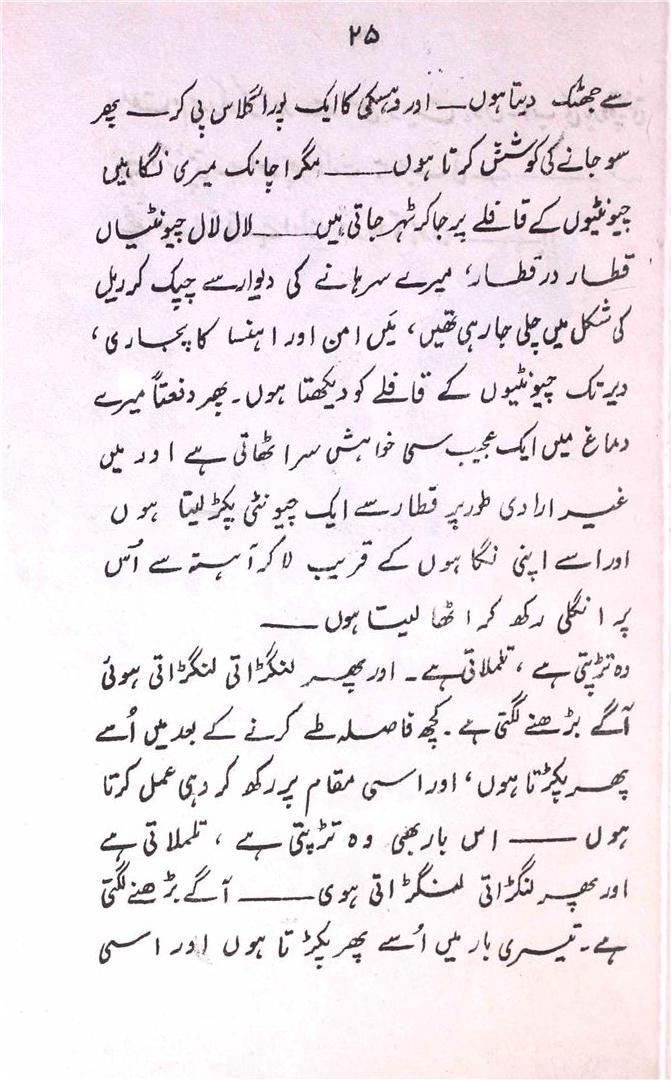 ۲۵
سے جھٹک دیتا ہوں ــــ اور وہسکی کا ایک پورا گلاس پی کر ــــ پھر
سو جانے کی کوشش کرتا ہوں ــــــــ مگر اچانک میری نگاہیں
چیونٹیوں کے قافلے پر جا کر ٹہر جاتی ہیں ــــــــ لال لال چیونٹیاں
قطار در قطار، میرے سرہانے کی دیوار سے چپک کر ریل
کی شکل میں چلی جا رہی تھیں، میں امن اور اہنسا کا پجاری،
دیر تک چیونٹیوں کے قافلے کو دیکھتا ہوں۔ پھر دفعتاً میرے
دماغ میں ایک عجیب سی خواہش سر اٹھاتی ہے اور میں
غیر ارادی طور پر قطار سے ایک چیونٹی پکڑ لیتا ہوں
اور اسے اپنی نگاہوں کے قریب لا کر آہستہ سے اُس
پر انگلی رکھ کر اٹھا لیتا ہوں ــــــ
وہ تڑپتی ہے، تلملاتی ہے۔ اور پھر لنگڑاتی لنگڑاتی ہوئی
آگے بڑھنے لگتی ہے۔ کچھ فاصلہ طے کرنے کے بعد میں اُسے
پھر پکڑتا ہوں، اور اسی مقام پر رکھ کر وہی عمل کرتا
ہوں ــــــ اس بار بھی وہ تڑپتی ہے، تلملاتی ہے
اور پھر لنگڑاتی لنگڑاتی ہوی ــــــــ آگے بڑھنے لگتی
ہے۔ تیسری بار میں اُسے پھر پکڑتا ہوں اور اسی